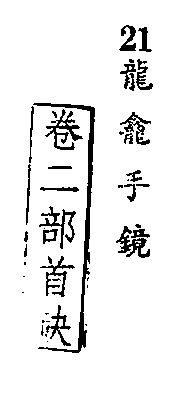 21龍龕手鏡
卷二部首决